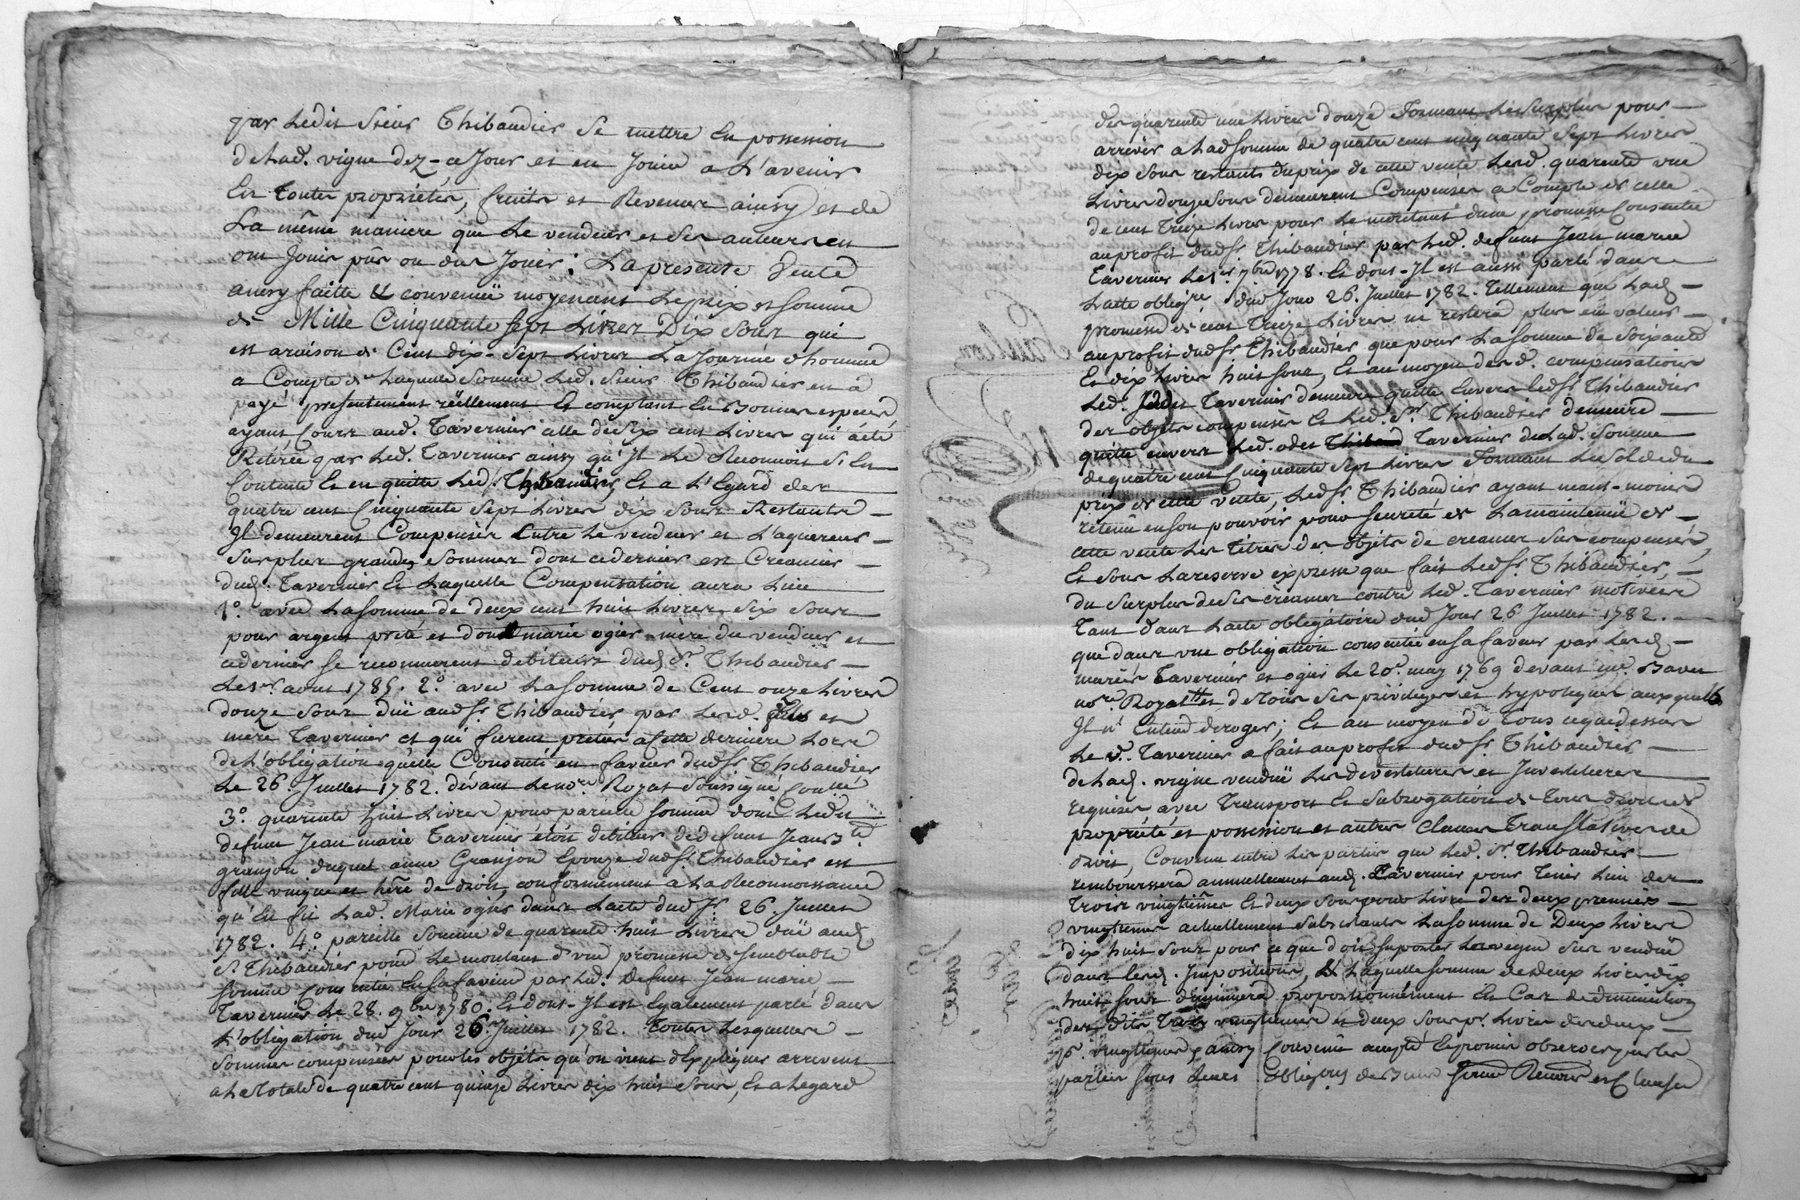 par Ledit Sieur Thibaudier Se mettre En possession
de Lad. vigne dez-ce Jour et en Jouir a L'avenir
En toutes propriétés, fruits et Revenus ainsy et de
La même maniere que Le vendeur et Ses auteurs en
ont Jouis pûs ou dus Jouir; La presente Vente
ainsy faitte & convenüe moyenant Le prix et Somme
de Mille Cinquante Sept Livres Dix Sous qui
est araison de Cent dix-Sept Livres La Journée d'homme
a Compte de Laquelle Somme Led. Sieur Thibaudier en à
payé presentement réellement Et comptant En bonnes especes
ayant Cours aud. Tavernier celle de Six cent Livres qui a été
Retirée par Led. Tavernier ainsy qu'Il Le Reconnoit S'en
Contente Et en quitte Led. Thibaudier, Et a L'Egard des
quatre cent Cinquante Sept Livres dix Sous Restants
Il demeurent Compensés Entre Le vendeur et L'aquereur
Sur plus grandes Sommes dont cedernier est Creancier
dud. Tavernier Et Laquelle Compensation aura Lieu
1.° avec LaSomme de deux cent huit Livres Six Sous
pour argent preté et dont marie ogier mere du vendeur et
cedernier se reconnurent debiteurs dud. Sr. Thibaudier
Le 1er aout 1785. 2.° avec LaSomme de Cent onze Livres
douze Sous düe aud Sr. Thibaudier par Lesd. fils et
mere Tavernier et qui furent pretés a cette derniere Lors
de L'obligation quelle Consenti en faveur dud Sr. Thibaudier
Le 26 Juillet 1782. devant Le nore. Royal Soussigné
3.° quarente huit Livres pour pareille Somme dont Ledit
defunt Jean Marie Tavernier étoit debiteur de defunt Jean
granjon duquel anne Granjon Epouse dud Sr. Thibaudier est
fille unique et hére de droit, conformement a La Reconnoissance
qu'En fit Lad. Marie ogier dans Lacte dud Jr 26 Juillet
1782. 4.° pareille Somme de quarente huit Livres düe aud.
Sr. Thibaudier pour Le montant d'une promesse de Semblable
Somme consentie En Sa faveur par Led. Defunt Jean marie
Tavernier Le 28. 9bre 1780. Et dont-Il est également parlé dans
L'obligation dud Jour 26 Juillet 1782. toutes Lesquelles
Sommes compensées pour les objets qu'on vient d'Expliquer arrivent
a La totale de quatre cent quinze Livres dix huit Sous, Et a Legard
des quarente une Livres douze Formant Le Surplus pour
arriver a Lad Somme de quatre cent cinquante Sept Livres
dix Sous restants du prix de cette vente Lesd. quarente une
Livres douze Sous demeurent Compensés a Compte de celle
de cent Treize Livres pour Le montant d'une promesse Consentie
au profit dud Sr. Thibaudier par Led. defunt Jean marie
Tavernier Le 1er 7bre 1778. Et dont-Il est aussi parlé dans
Lacte dud Jour 26. Juillet 1782. Tellement que Lad.
promesse de cent Treize Livres ne restera plus en valeur
au profit dud Sr. Thibaudier que pour LaSomme de Soixante
Et dix Livres huit Sous, Et au moyen desd. compensations
Led. Tavernier demeure quitte Envers Led Sr. Thibaudier
des objets compensés Et Led. Sr. Thibaudier demeure
quitte envers Led. Tavernier de Lad. Somme
de quatre cent Cinquante Sept Livres Formant Le Solde du
prix de cette vente, Led Sr. Thibaudier ayant neant-moins
retenu en Son pouvoir pour Seureté de La maintenüe de
cette vente Les Titres des objets de creances Sus compensés,
Et Sous La reserve expresse que fait Led Sr. Thibaudier
du Surplus de Ses creances contre Led. Tavernier motivées
Tant dans Lacte obligatoire dud Jour 26 Juillet 1782.
que dans une obligation consentie en Sa faveur par Lesd.
mariés Tavernier et ogier Le 20e. may 1769 devant me.
nore. Royal et de tous Ses privileges et hypoteques auxquels
Il n'Entend deroger; Et au moyen de tous cequedessus
Le Sr. Tavernier a fait au profit dud Sr. Thibaudier
de Lad. vigne vendüe Les devestitures et Investitures
requises avec Transport Et Subrogation de Tous droits de
propriété et possession et autres Clauses Translatives de
droit, Convenu entre Les parties que Led. Sr. Thibaudier
remboursera annuellement aud. Tavernier pour Tenir Lieu des
trois vingtièmes Et deux Sous pour Livre des deux premiers
vingtiemes actuellement Subsistants LaSomme de Deux Livres
dix huit Sous pour ce que doit Suporter La vigne Sus vendüe
dans Lesd. Impositions, & Laquelle Somme de deux Livres dix
huit Sous diminuera proportionnément En Cas de diminution
des dits Trois vingtiemes et deux Sous pr. Livre des deux
prs. vingtiemes, ainsy Convenu accepté Et promis observer par les
parties Sous Leurs obligons de biens Renons et Clauses